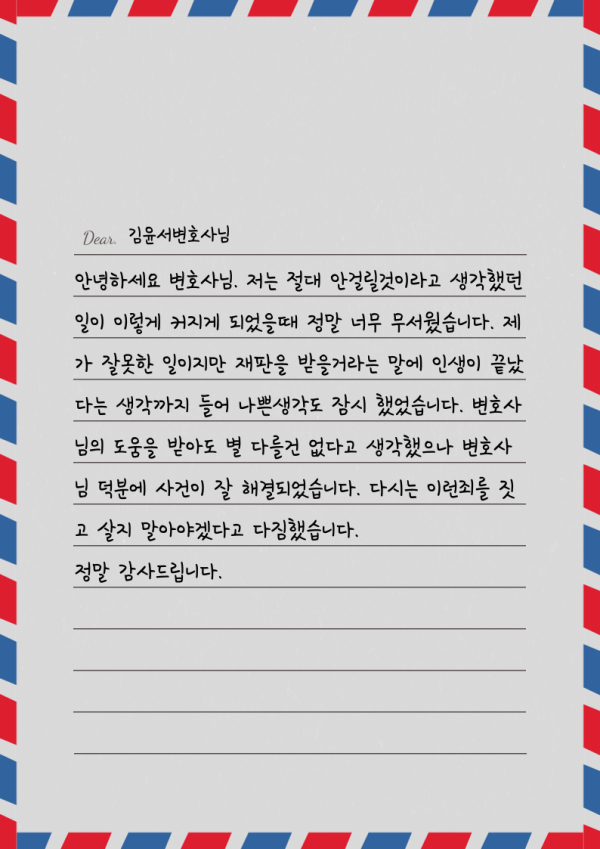 Dear. 김윤서변호사님
안녕하세요 변호사님. 저는 절대 안걸릴것이라고 생각했던
일이 이렇게 커지게 되었을때 정말 너무 무서웠습니다. 제
가 잘못한 일이지만 재판을 받을거라는 말에 인생이 끝났
다는 생각까지 들어 나쁜생각도 잠시 했었습니다. 변호사
님의 도움을 받아도 별 다를건 없다고 생각했으나 변호사
님 덕분에 사건이 잘 해결되었습니다. 다시는 이런죄를 짓
고 살지 말아야겠다고 다짐했습니다.
정말 감사드립니다.